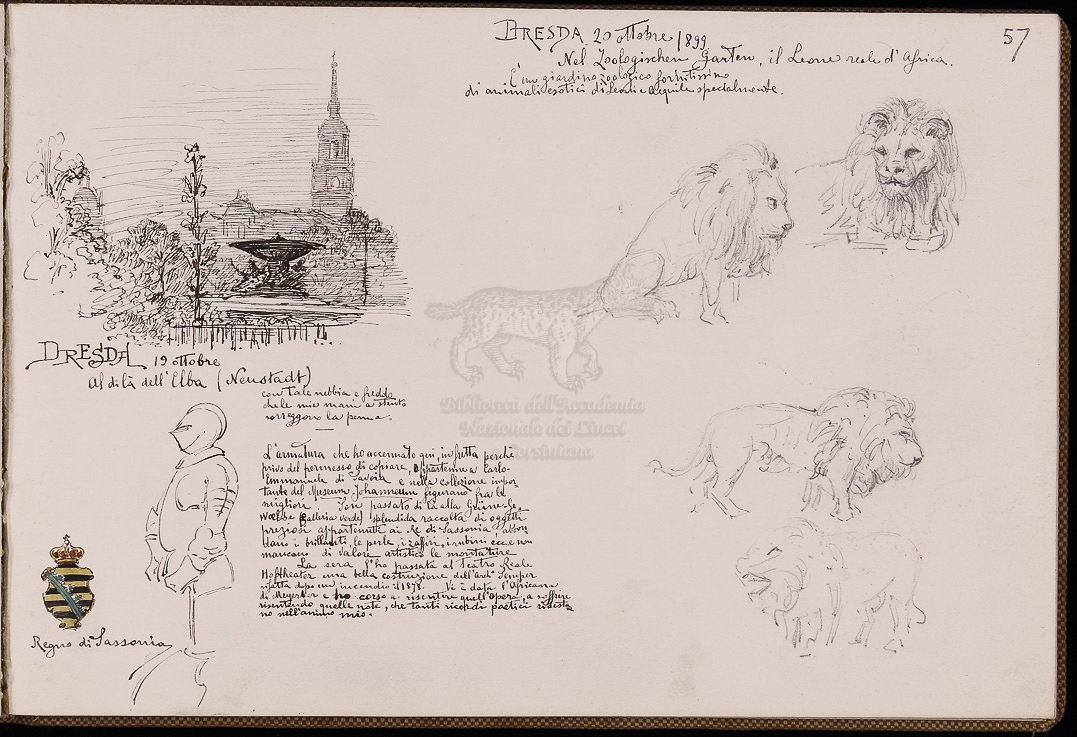 DRESDA 20 ottobre 1899
57
Nel Zoologischen Garten, il Leone reale d'Africa.
È un giardino zoologico fornitissimo
di animali esotici di Leoni e Aquile specialmente.
DRESDA 19 ottobre
Al di là dell'Elba (Neustadt)
con tale nebbia e freddo
che le mie mani a stento
reggono la penna.
L'armatura che ho accennato qui, in fretta perché
privo del permesso di copiare, appartenne a Carlo-
Emmanuele di Savoia e nella collezione impor
tante del Museum Johanneum figurano fra le
migliori. Son passato di là alla Grüne-Ge
woelbe (Galleria verde) splendida raccolta di oggetti
preziosi appartenuti ai Re di Sassonia, abbon
dano i brillanti, le perle, i zaffiri, i rubini ecc. e non
mancano di valore artistico le montature
La sera l'ho passata al Teatro Reale
Hoftheater una bella costruzione dell'arch. Semper
rifatta dopo un incendio il 1878. Vi è data l'Africana
di Meyerber e ho corso a risentire quell'Opera, a soffrire
risentendo quelle note, che tanti ricordi poetici ridesta
no nell'animo mio.
Regno di Sassonia
Biblioteca dell'Accademia
Nazionale dei Lincei
Corsiniana